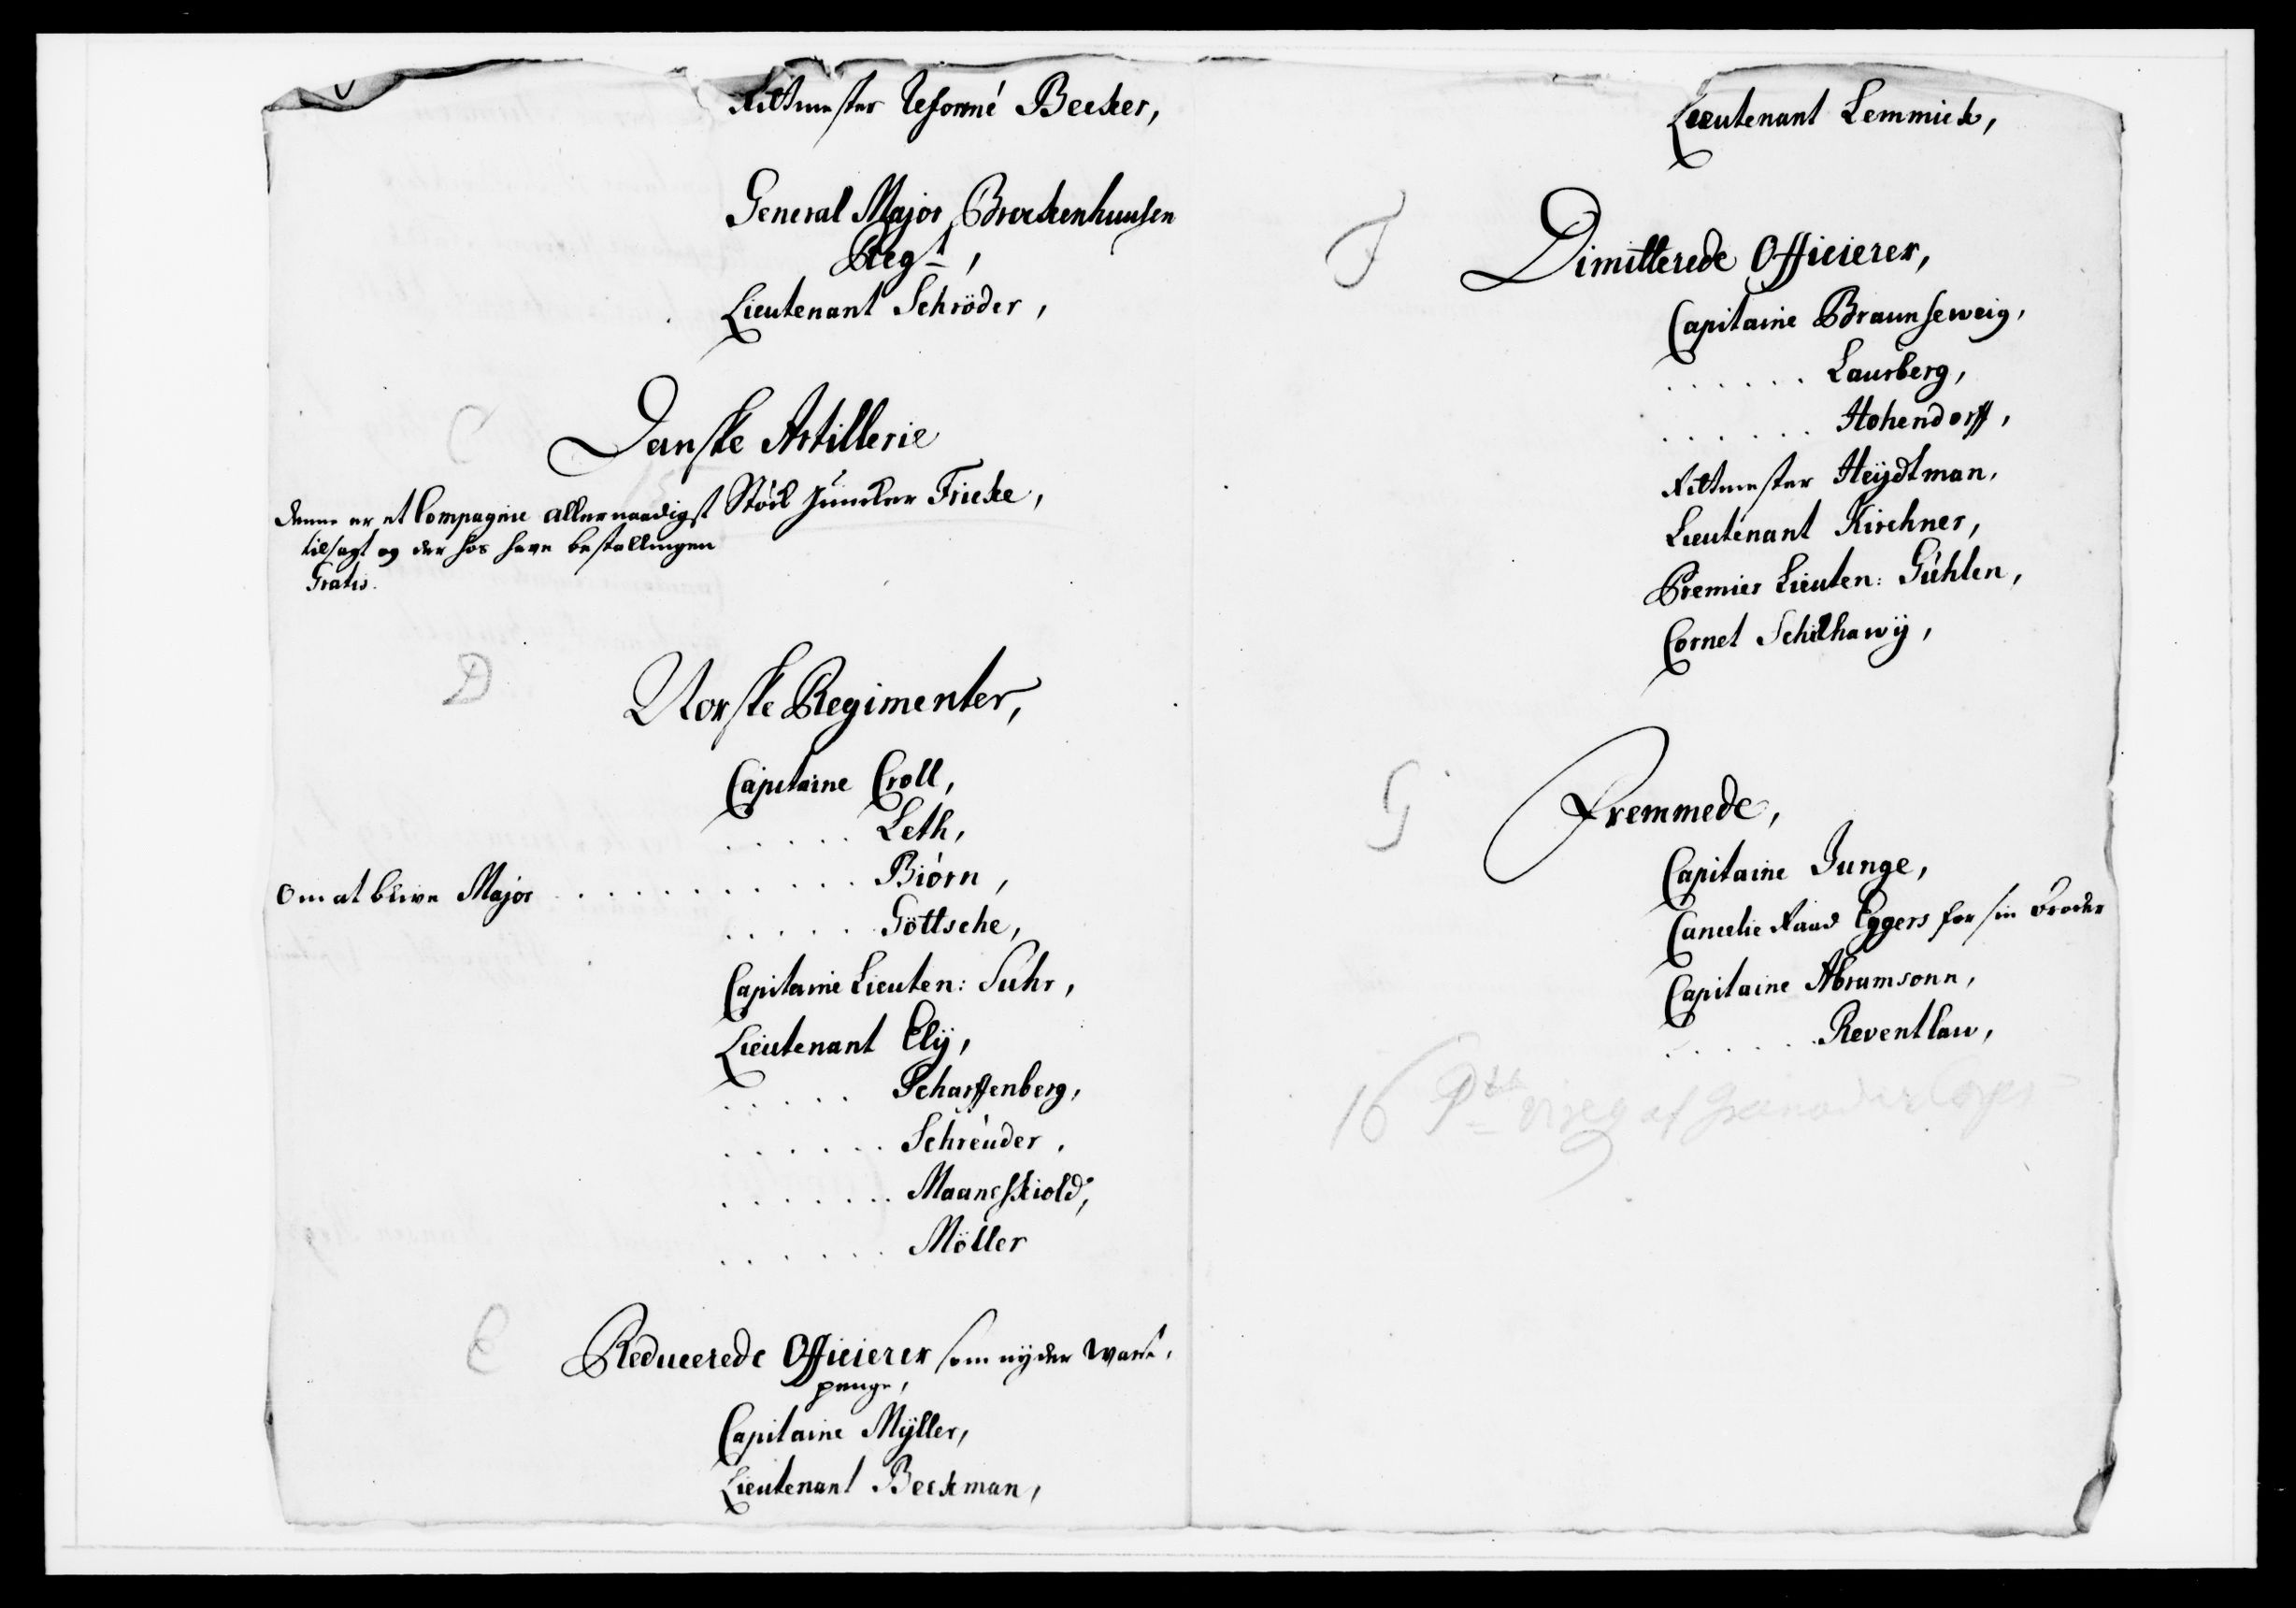 Rittmester Reformé Becker,
General Major Brockenhuusen
Regt,
Lieutenant Schröder,
C
Danske Artillerie
denne er et Compagnie allernaadigst Stöck Juncker Fricke,
tilsagt og der hos have bestallingen
Gratis.
D
Norske Regimenter,
Capitaine Croll,
. . . . . Leth,
Om at blive Major . . . . . . . . . . . Biörn,
. . . . . Göttsche,
Capitaine Lieuten: Suhr,
Lieutenant Elÿ,
. . . . . Scharffenberg,
. . . . . . Schreuder,
. . . . . . . Maaneskiold,
. . . . . . Möller
E
Reducerede Officierer som nÿder Warte,
penge,
Capitaine Mÿller,
Lieutenant Beckman,
Lieutenant Lemmick,
F
Dimitterede Officierer,
Capitaine Braunseweig,
. . . . . . Laurberg,
. . . . . . Hohendorff,
Rittmester Heÿdtman,
Lieutenant Kirchner,
Premier Lieuten: Gühlen,
Cornet Schilhawÿ,
G
Fremmede,
Capitaine Junge,
Cancelie Raad Eggers for sin broder
Capitaine Abramsonn,
. . . . . . Reventlau,
16 af Grenadier Corps